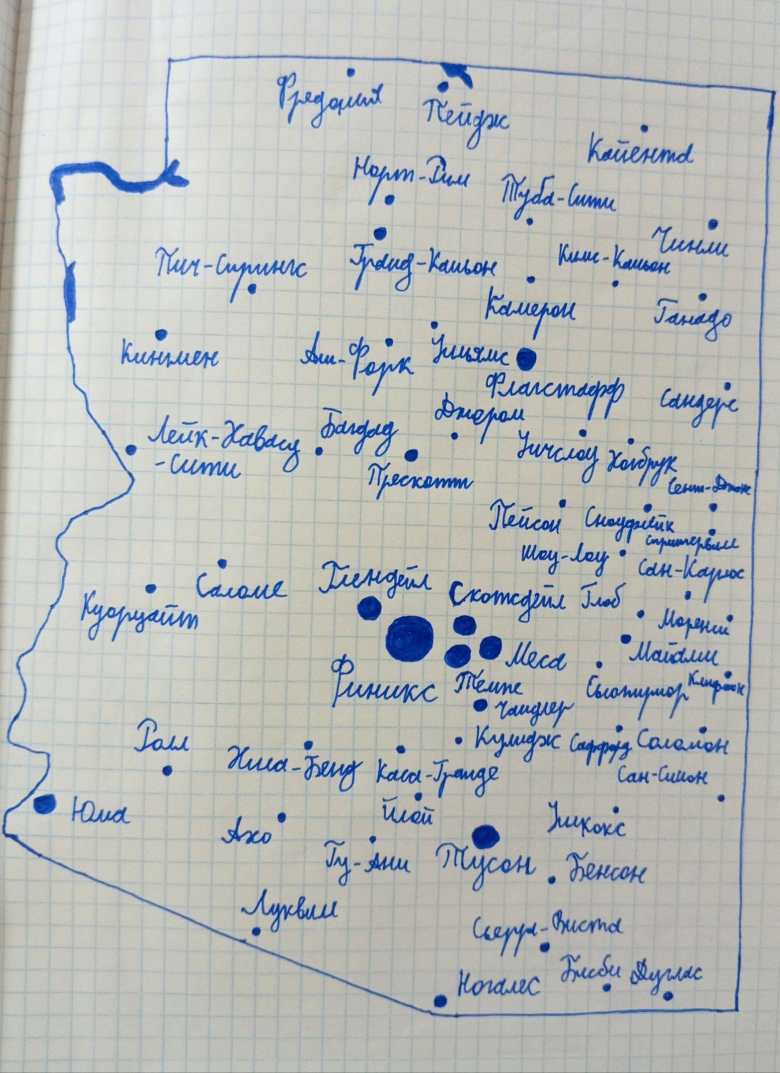 Фредония
Пейдж
Кайента
Норт-Рим
Туба-Сити
Чинли
Пич-Спрингс
Гранд-Каньон
Кимс-Каньон
Камерон
Ганадо
Кингмен
Аш-Форк
Уильямс
Флагстафф
Сандерс
Джером
Лейк-Хавасу
-Сити
Багдад
Прескотт
Уинслоу
Холбрук
Сент-Джонс
Пейсон
Сноуфлейк
Спрингервилл
Шоу-Лоу
Сан-Карлос
Куорцайт
Саломе
Глендейл
Скотсдейл
Глоб
Моренси
Меса
Майами
Финикс
Темпе
Сьюпириор
Клифтон
Чандлер
Ролл
Хила-Бенд
Каса-Гранде
Кулидж
Саффорд
Соломон
Сан-Симон
Юма
Ахо
Илой
Уилкокс
Гу-Ачи
Тусон
Бенсон
Луквилл
Сьерра-Виста
Ногалес
Бисби
Дуглас